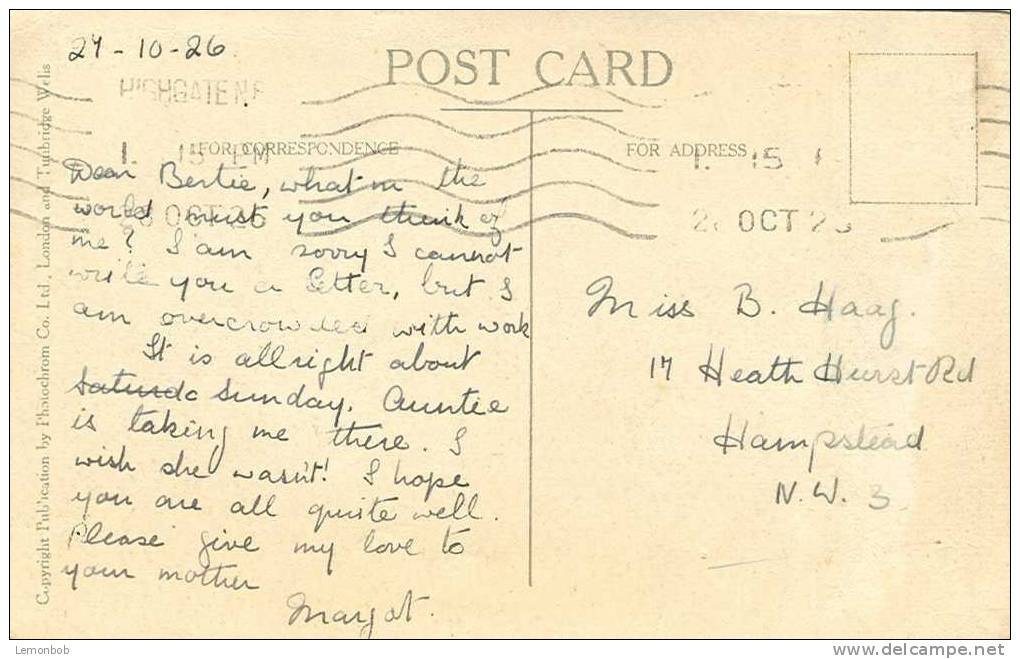 27-10-26
POST CARD
HIGHGATE N.6
FOR CORRESPONDENCE
FOR ADDRESS
1. 15 PM
1. 15
28 OCT 26
OCT
Dear Bertie, what in the
world must you think of
me? I am sorry I cannot
write you a letter, but I
am overcrowded with work
It is allright about
Saturda Sunday. Auntie
is taking me there. I
wish she wasn't! I hope
you are all quite well.
Please give my love to
your mother
Margot.
Miss B. Haag.
17 Heath Hurst Rd
Hampstead
N.W. 3
Copyright Publication by Photochrom Co. Ltd., London and Tunbridge Wells
Lemonbob
delcampe.net